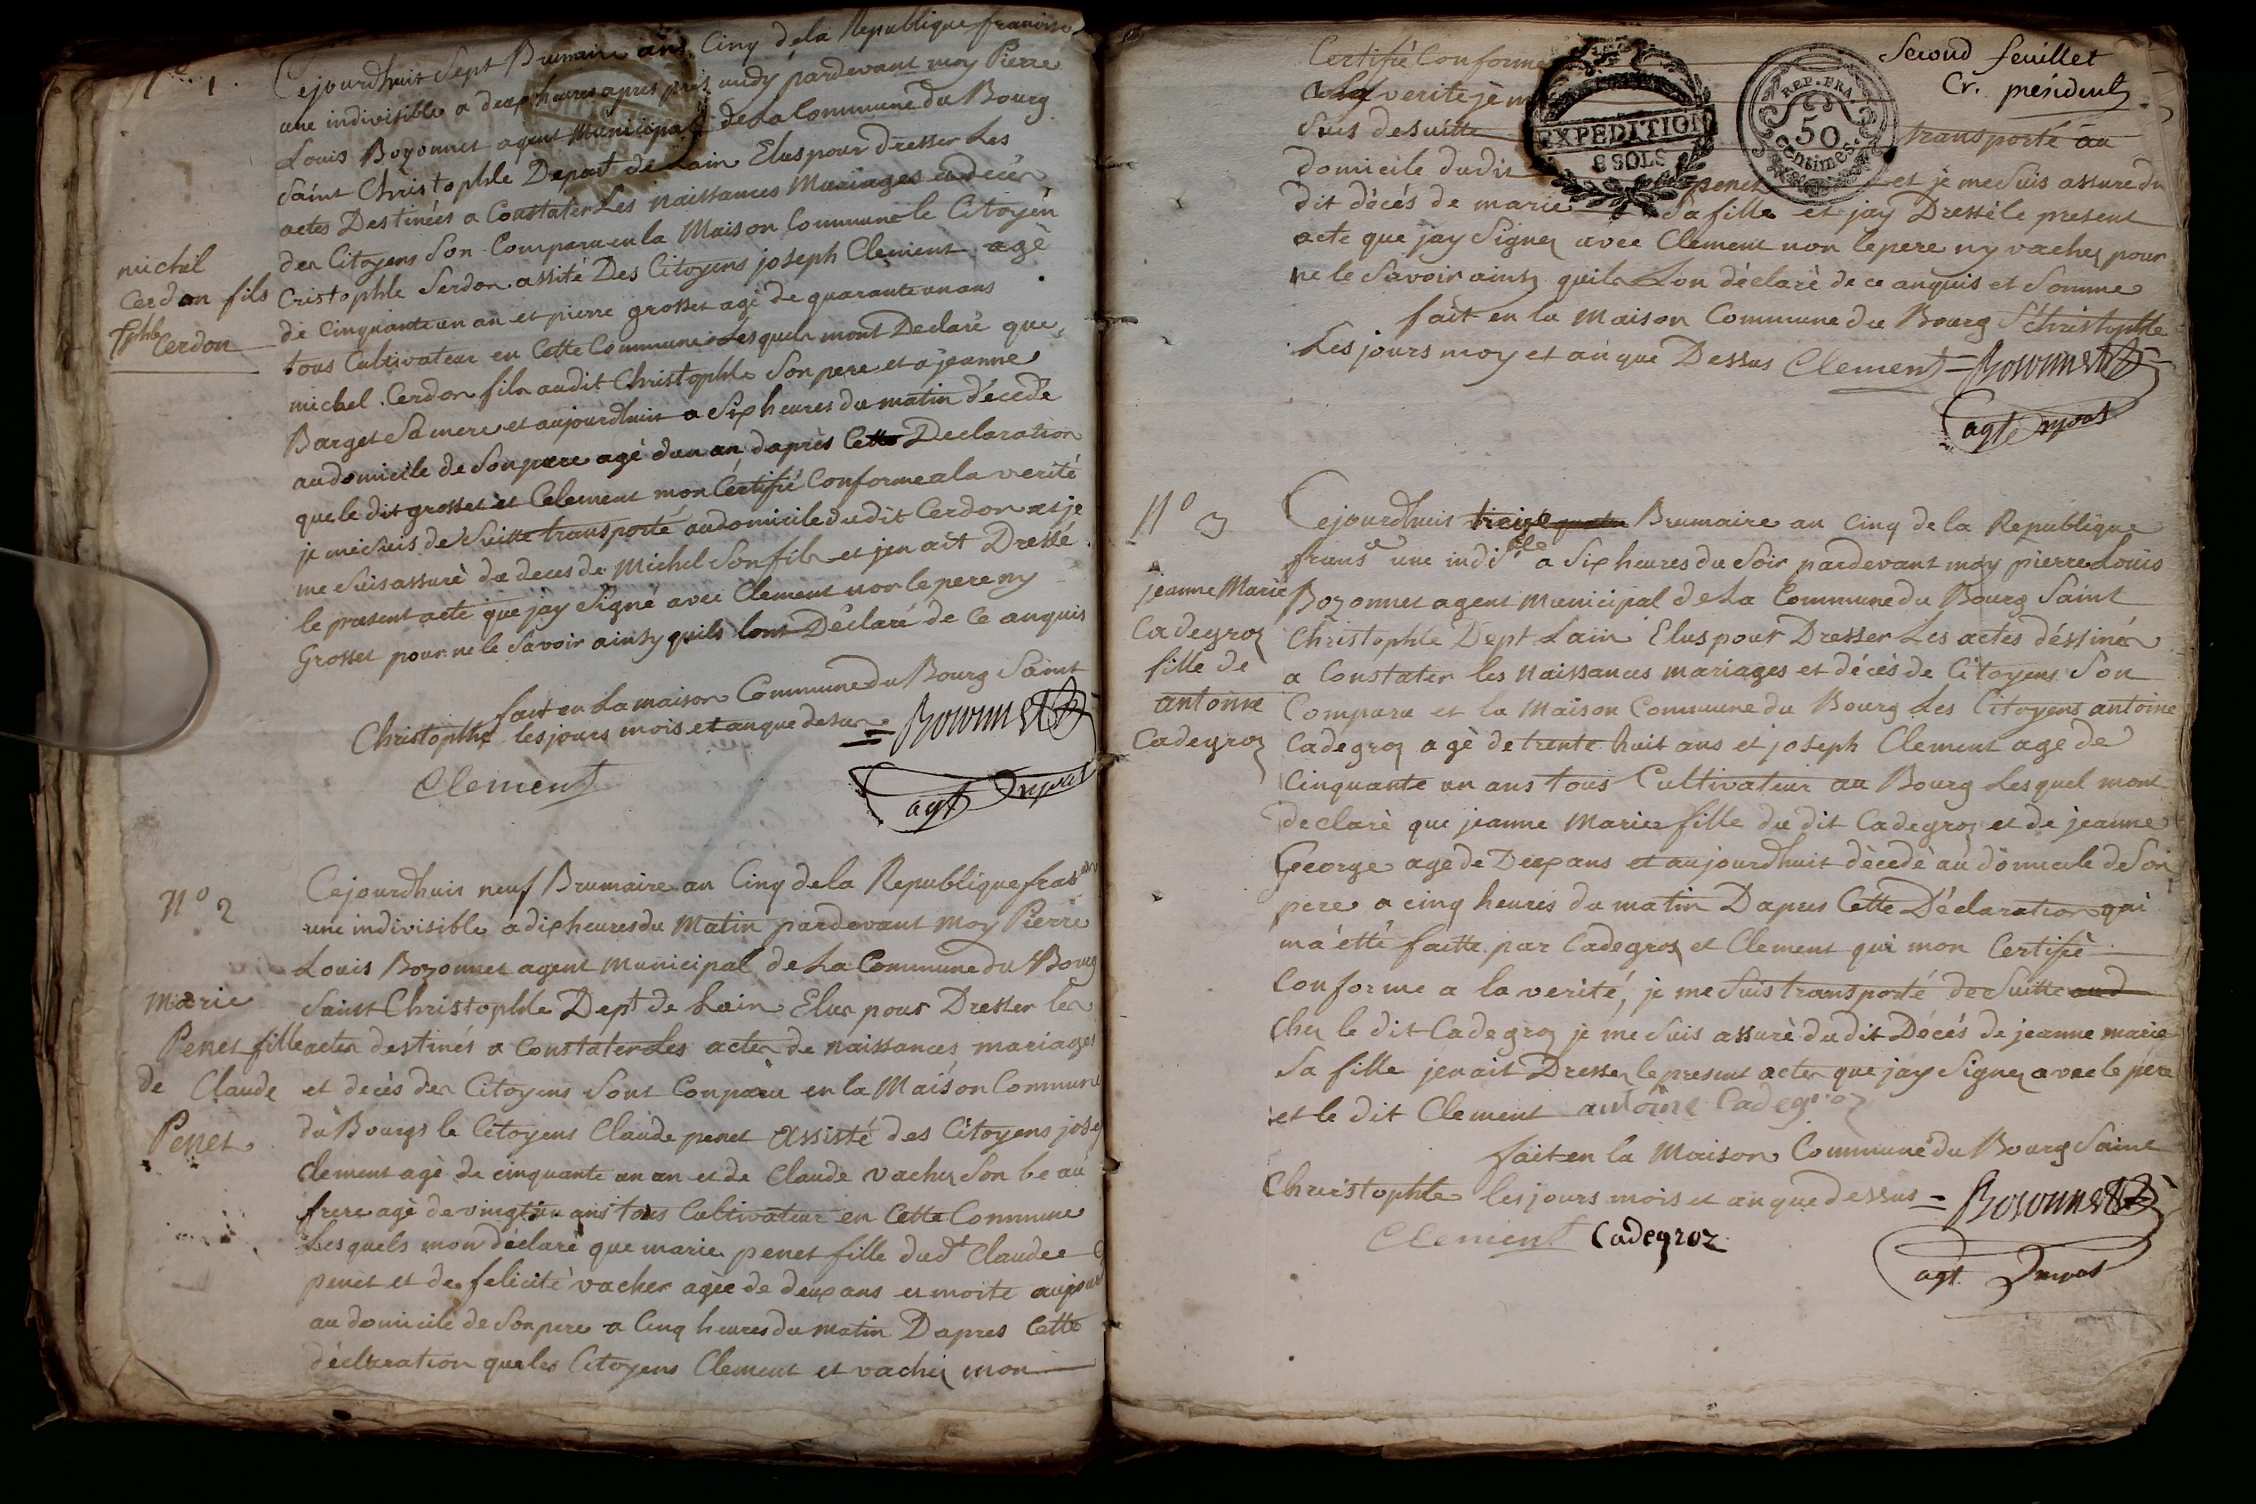 N° 1.
Cejourdhuit Sept Brumaire an Cinq dela Republique francise
une indivisible a deux heures apres midy pardevant moy Pierre
Louis Bozonnet agent Municipal de La Commune du Bourg
Saint Christophle Depart de Lain Elus pour dresser Les
actes Destinées a Constater Les naissances Mariages et décés
des Citoyens Son Comparu en la Maison Commune le Citoyen
Cristophle Serdon assité Des Citoyens joseph Clement agè
de Cinquante un an et pierre grosset agé de quarante un ans
tous Cultivateur en Cette Commune Lesquels mont Declaré que
michel Cerdon fils audit Christophle Son pere et a jeanne
Barget Sa mere et aujourdhuit a Six heures du matin décédé
au domicile de Son pere agé dun an daprès Cette Declaration
que le dit grosset et Celement mon Certifié Conforme a la verité
je me Suis de Suitte transporté au domicile du dit Cerdon et je
me Suis assuré du deces de Michel Son fils et jen ait Dressé
le present acte que jay Signé avec Clement non le pere ny
Grosset pour ne le Savoir ainsy quils lont Déclaré de Ce anquis
fait en La maison Commune du Bourg Saint
Christophle les jours mois et an que desus = Bozonnet
Clement agt
michel
Cerdon fils
Cerdon
N° 2
Cejourdhuis neuf Brumaire an Cinq dela Republique
une indivisible a dix heures du Matin pardevant moy Pierre
Louis Bozonnet agent municipal de La Commune du Bourg
Saint Christophle Dept de Lain Elus pour Dresser les
actes destinés a Constater Les actes de naissances mariages
et decès des Citoyens Sont Comparu en la Maison Commune
du Bourgs le Citoyens Claude penet assisté des Citoyens
Clement agè de cinquante un an et de Claude vachez Son beau
frere agè de vingt un ans tous Cultivateur en Cette Commune
Lesquels mon déclaré que marie penet fille dudt Claude
penet et de felicité vacher agée de deux ans et morte
au domicile de Son pere a Cinq heures du matin Dapres Cette
déclaration que les Citoyens Clement et vachez mon
marie
Penet fille
de Claude
Penet
Second feuillet
Cr. président
Certifié Conforme
a La verite je m
EXPEDITION
8 SOLS
REP. FRA.
50
Centimes.
Suis de suitte transporté au
domicile du dit penet et je me Suis assuré du
dit décés de marie Sa fille et jay Dressé le present
acte que jay Signez avec Clement non le pere ny vachez pour
ne le Savoir ainsy quils Lon déclaré de ce anquis et Somme
fait en la Maison Commune du Bourg St Christophle
Les jours moy et an que Dessus Clement = Bozonnet
agt
N° 3
Cejourdhuis treize Brumaire an Cinq de la Republique
frans une indi ble a Six heures du Soir pardevant moy pierre Louis
Bozonnet agent Municipal de La Commune du Bourg Saint
Christophle Dept Lain Elus pour Dresser Les actes déstinés
a Constater les Naissances mariages et décès de Citoyens Son
Comparu et la Maison Commune du Bourg Les Citoyens antoine
Cadegroz agè de trente huit ans et joseph Clement age de
Cinquante un ans tous Cultivateur au Bourg Lesquel mont
declarè que jeanne Marie fille du dit Cadegroz et de jeanne
George age de Deux ans et aujourdhuit dècedè au domicile de Son
pere a cinq heures du matin Dapres Cette Déclaration qui
ma étté faitte par Cadegroz et Clement qui mon Certifiè
Conforme a la verité, je me Suis transporté de Suitte
chez le dit Cadegroz je me Suis assurè du dit Décés de jeanne marie
Sa fille jen ait Dressez le present actes que jay Signez avec le pere
et le dit Clement antoine Cadegroz
fait en la Maison Commune du Bourg Saint
Christophle les jours mois et an que dessus = Bozonnet
Clement Cadegroz
agt
jeanne Marie
Cadegroz
fille de
antoine
Cadegroz